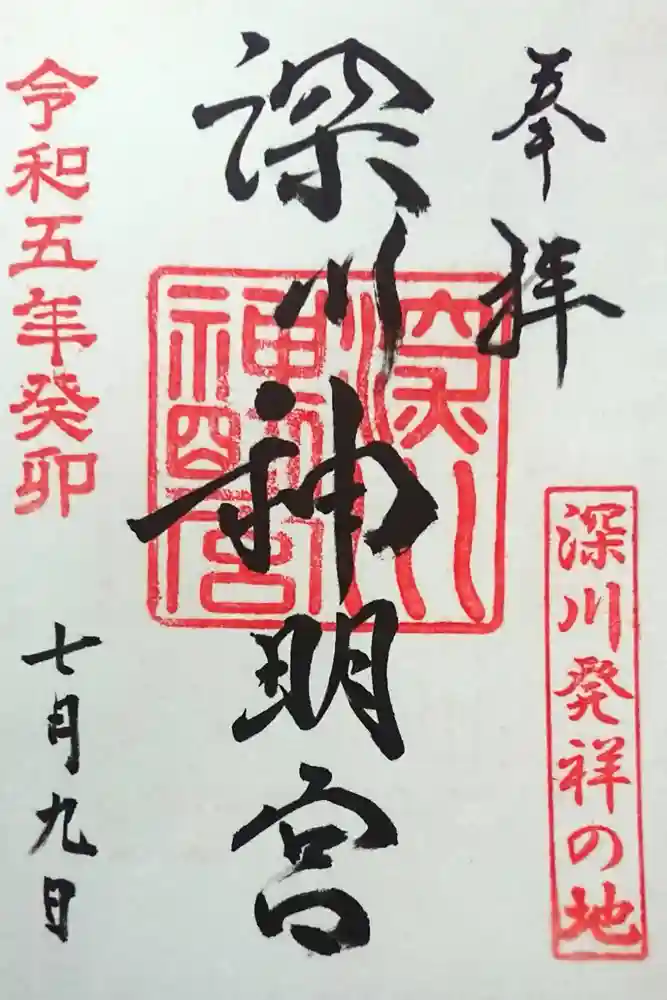 奉拝
深川発祥の地
深川神明宮
深川神明宮
令和五年癸卯
七月九日